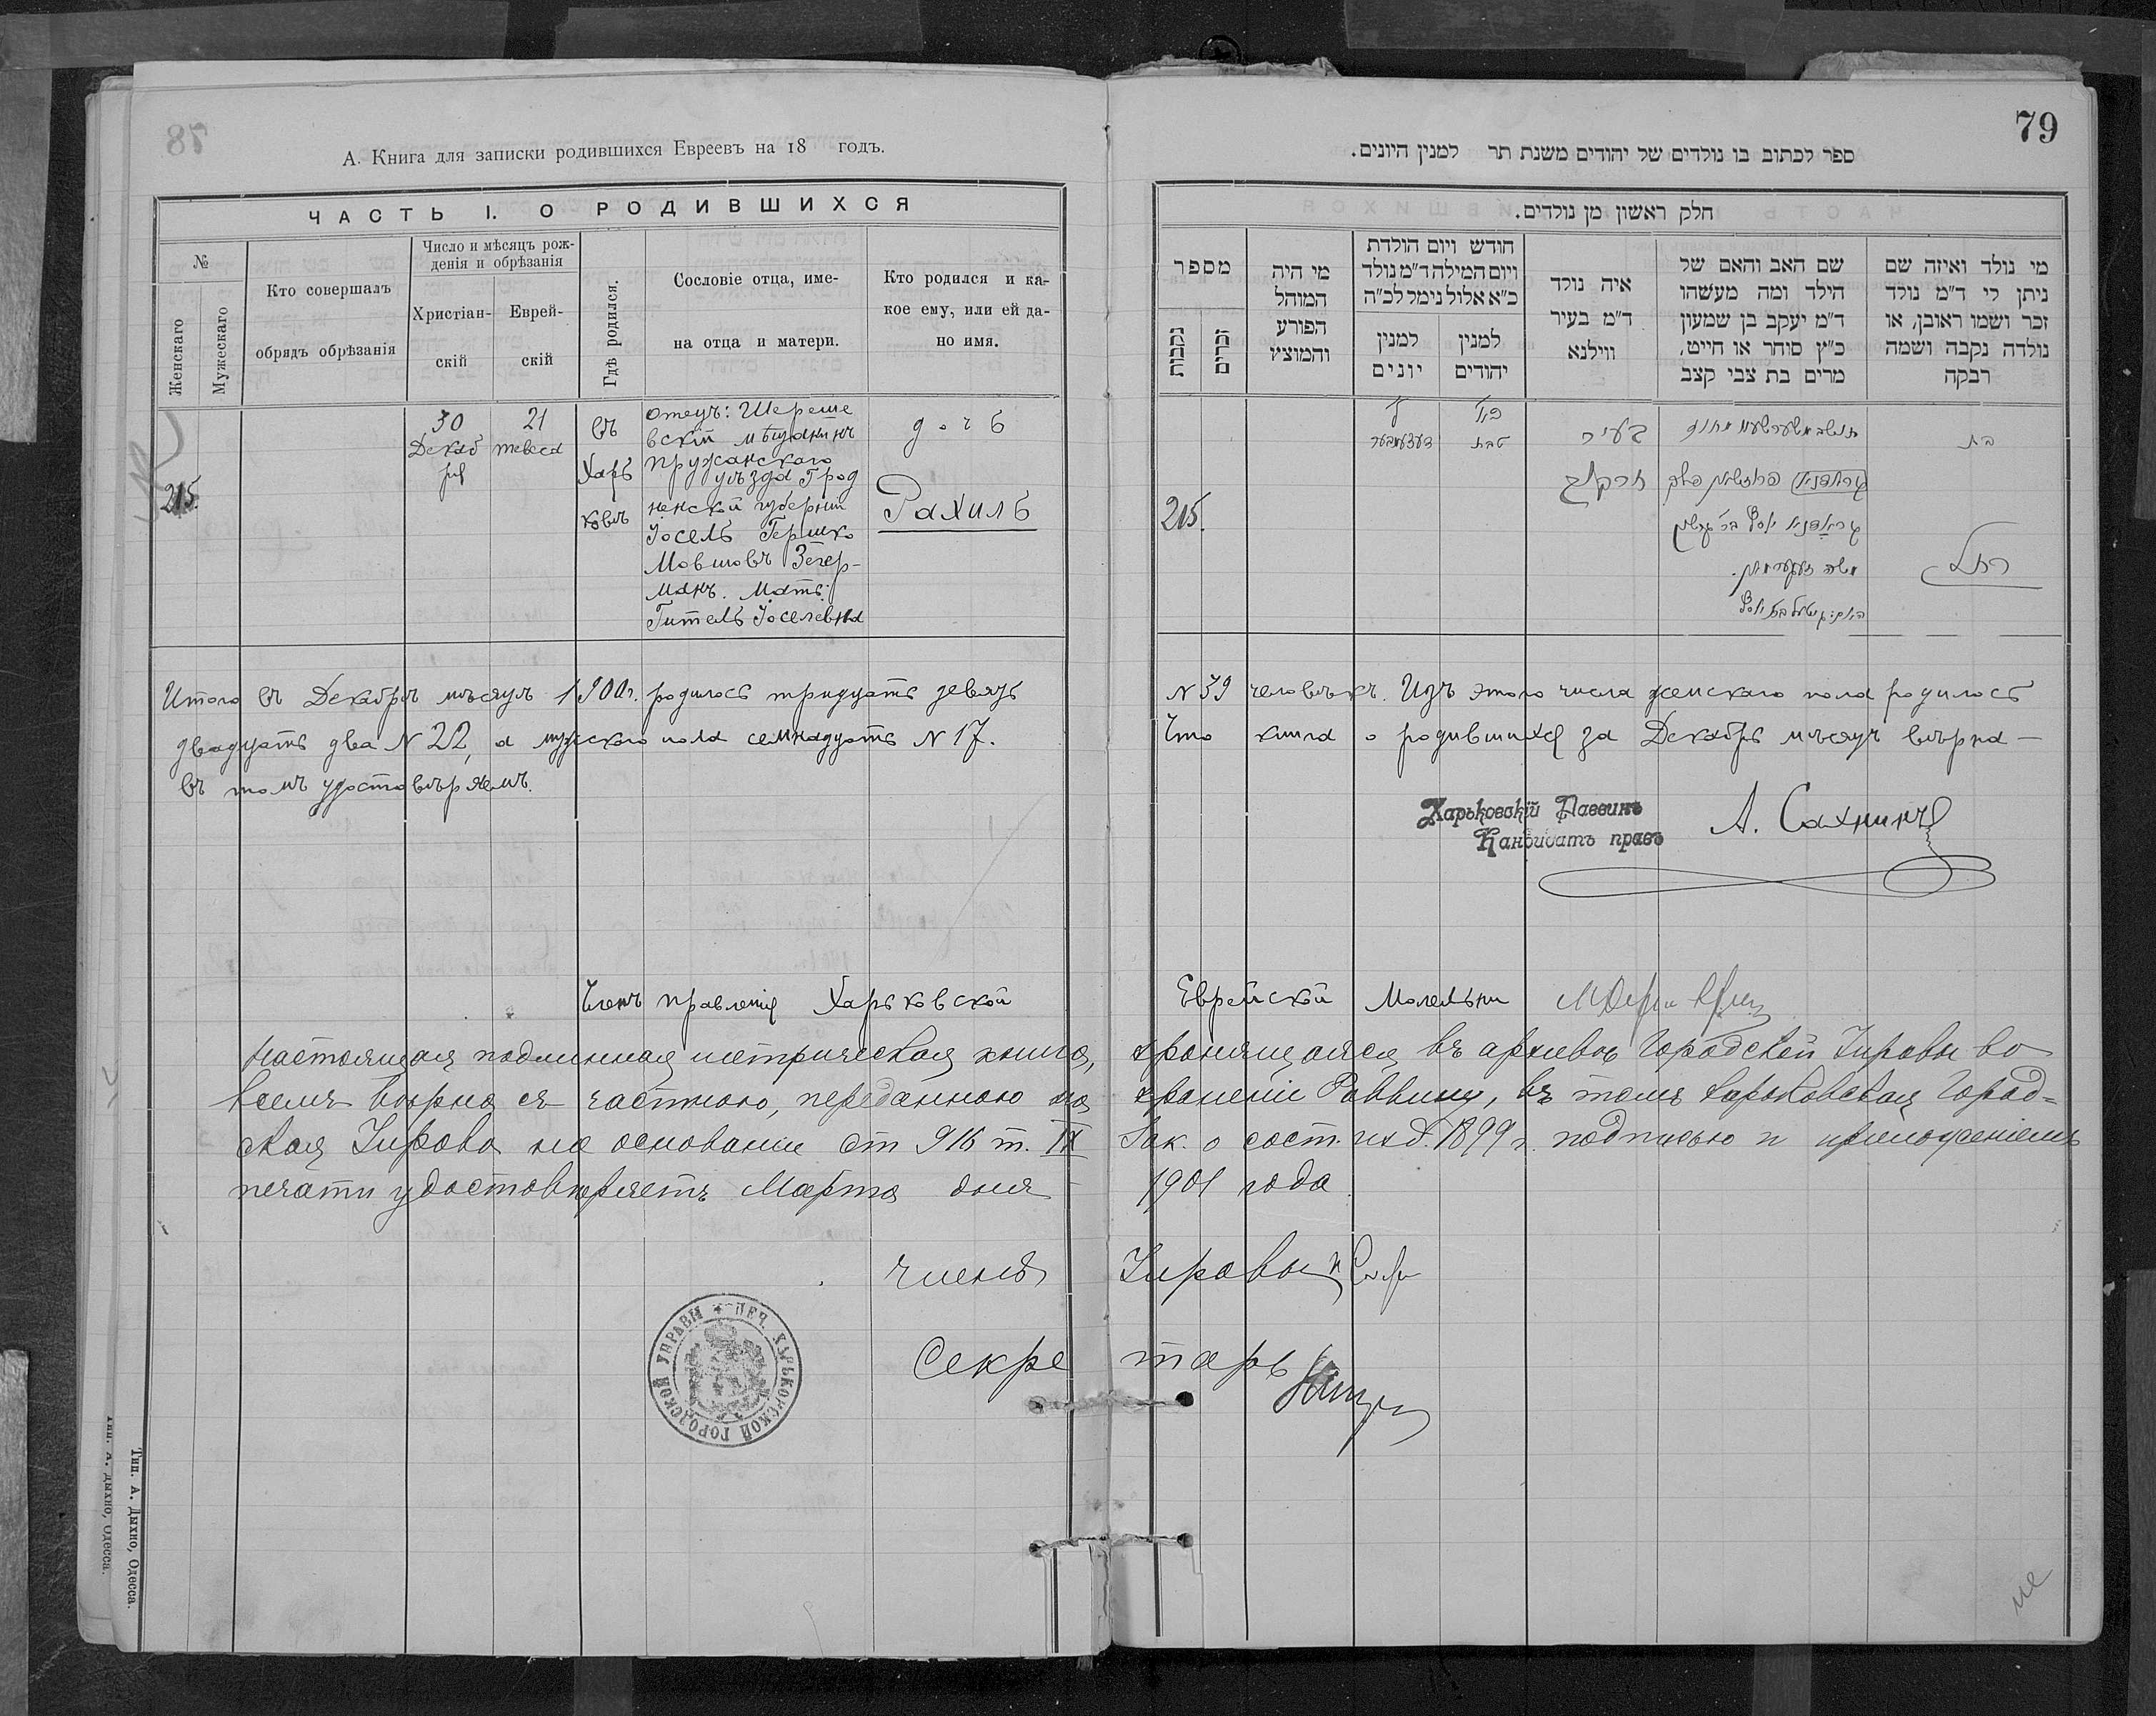 А. Книга для записки родившихся Евреевъ на 18 годъ.
ЧАСТЬ I. О РОДИВШИХСЯ
№
Женскаго
Мужескаго
Кто совершалъ
обрядъ обрѣзанія
Число и мѣсяцъ рож-
денія и обрѣзанія
Христіан-
скій
Еврей-
скій
Гдѣ родился.
Сословіе отца, име-
на отца и матери.
Кто родился и ка-
кое ему, или ей да-
но имя.
215.
30
Декаб
ря
21
тевеса
въ
Харь
ковѣ
отецъ: Шереше
вскій мѣщанинъ
Пружанскаго
уѣзда Грод
ненской губерніи
Іосель Гершко
Мовшовъ Зегер-
манъ. Мать:
Гитель Іоселевна
дочь
Рахиль
79
ספר לכתוב בו נולדים של יהודים משנת תר למנין היונים.
חלק ראשון מן נולדים.
מספר
נקבות
זכרים
מי היה
המוהל
הפורע
והמוציץ
חודש ויום הולדת
ויום המילה ד"מ נולד
כ"א אלול נימל לכ"ה
למנין
יונים
למנין
יהודים
איה נולד
ד"מ בעיר
ווילנא
שם האב והאם של
הילד ומה מעשהו
ד"מ יעקב בן שמעון
כ"ץ סוחר או חייט,
מרים בת צבי קצב
מי נולד ואיזה שם
ניתן לי ד"מ נולד
זכר ושמו ראובן, או
נולדה נקבה ושמה
רבקה
215.
ל'
דעצעמבער
כ"א
טבת
בעיר
חרקוב
משה זעגערמאן.
האם: גיטל בת יוסף
בת
רחל
Итого въ Декабрѣ мѣсяцѣ 1900г. родилось тридцать девять № 39 человѣкъ. Изъ этого числа женскаго пола родилось
двадцать два № 22, а мужскаго пола семнадцать № 17. Что книга о родившихся за Декабрь мѣсяцъ вѣрна —
въ томъ удостовѣряемъ.
Харьковскій Раввинъ
Кандидатъ правъ
А. Сахнинъ
Членъ правленія Харьковской Еврейской Молельни
Настоящая подлинная метрическая книга, хранящаяся въ архивѣ Городской Управы во
всемъ вѣрна съ частною, переданною на храненіе Раввину, въ томъ Харьковская Город=
ская Управа на основаніи ст 916 т. IX Зак. о сост. изд. 1899 г. подписью и приложеніемъ
печати удостовѣряетъ Марта дня 1901 года
Членъ Управы
Секретарь
ПЕЧ. ХАРЬКОВСКОЙ ГОРОДСКОЙ УПРАВЫ
Тип. А. Дыхно, Одесса.